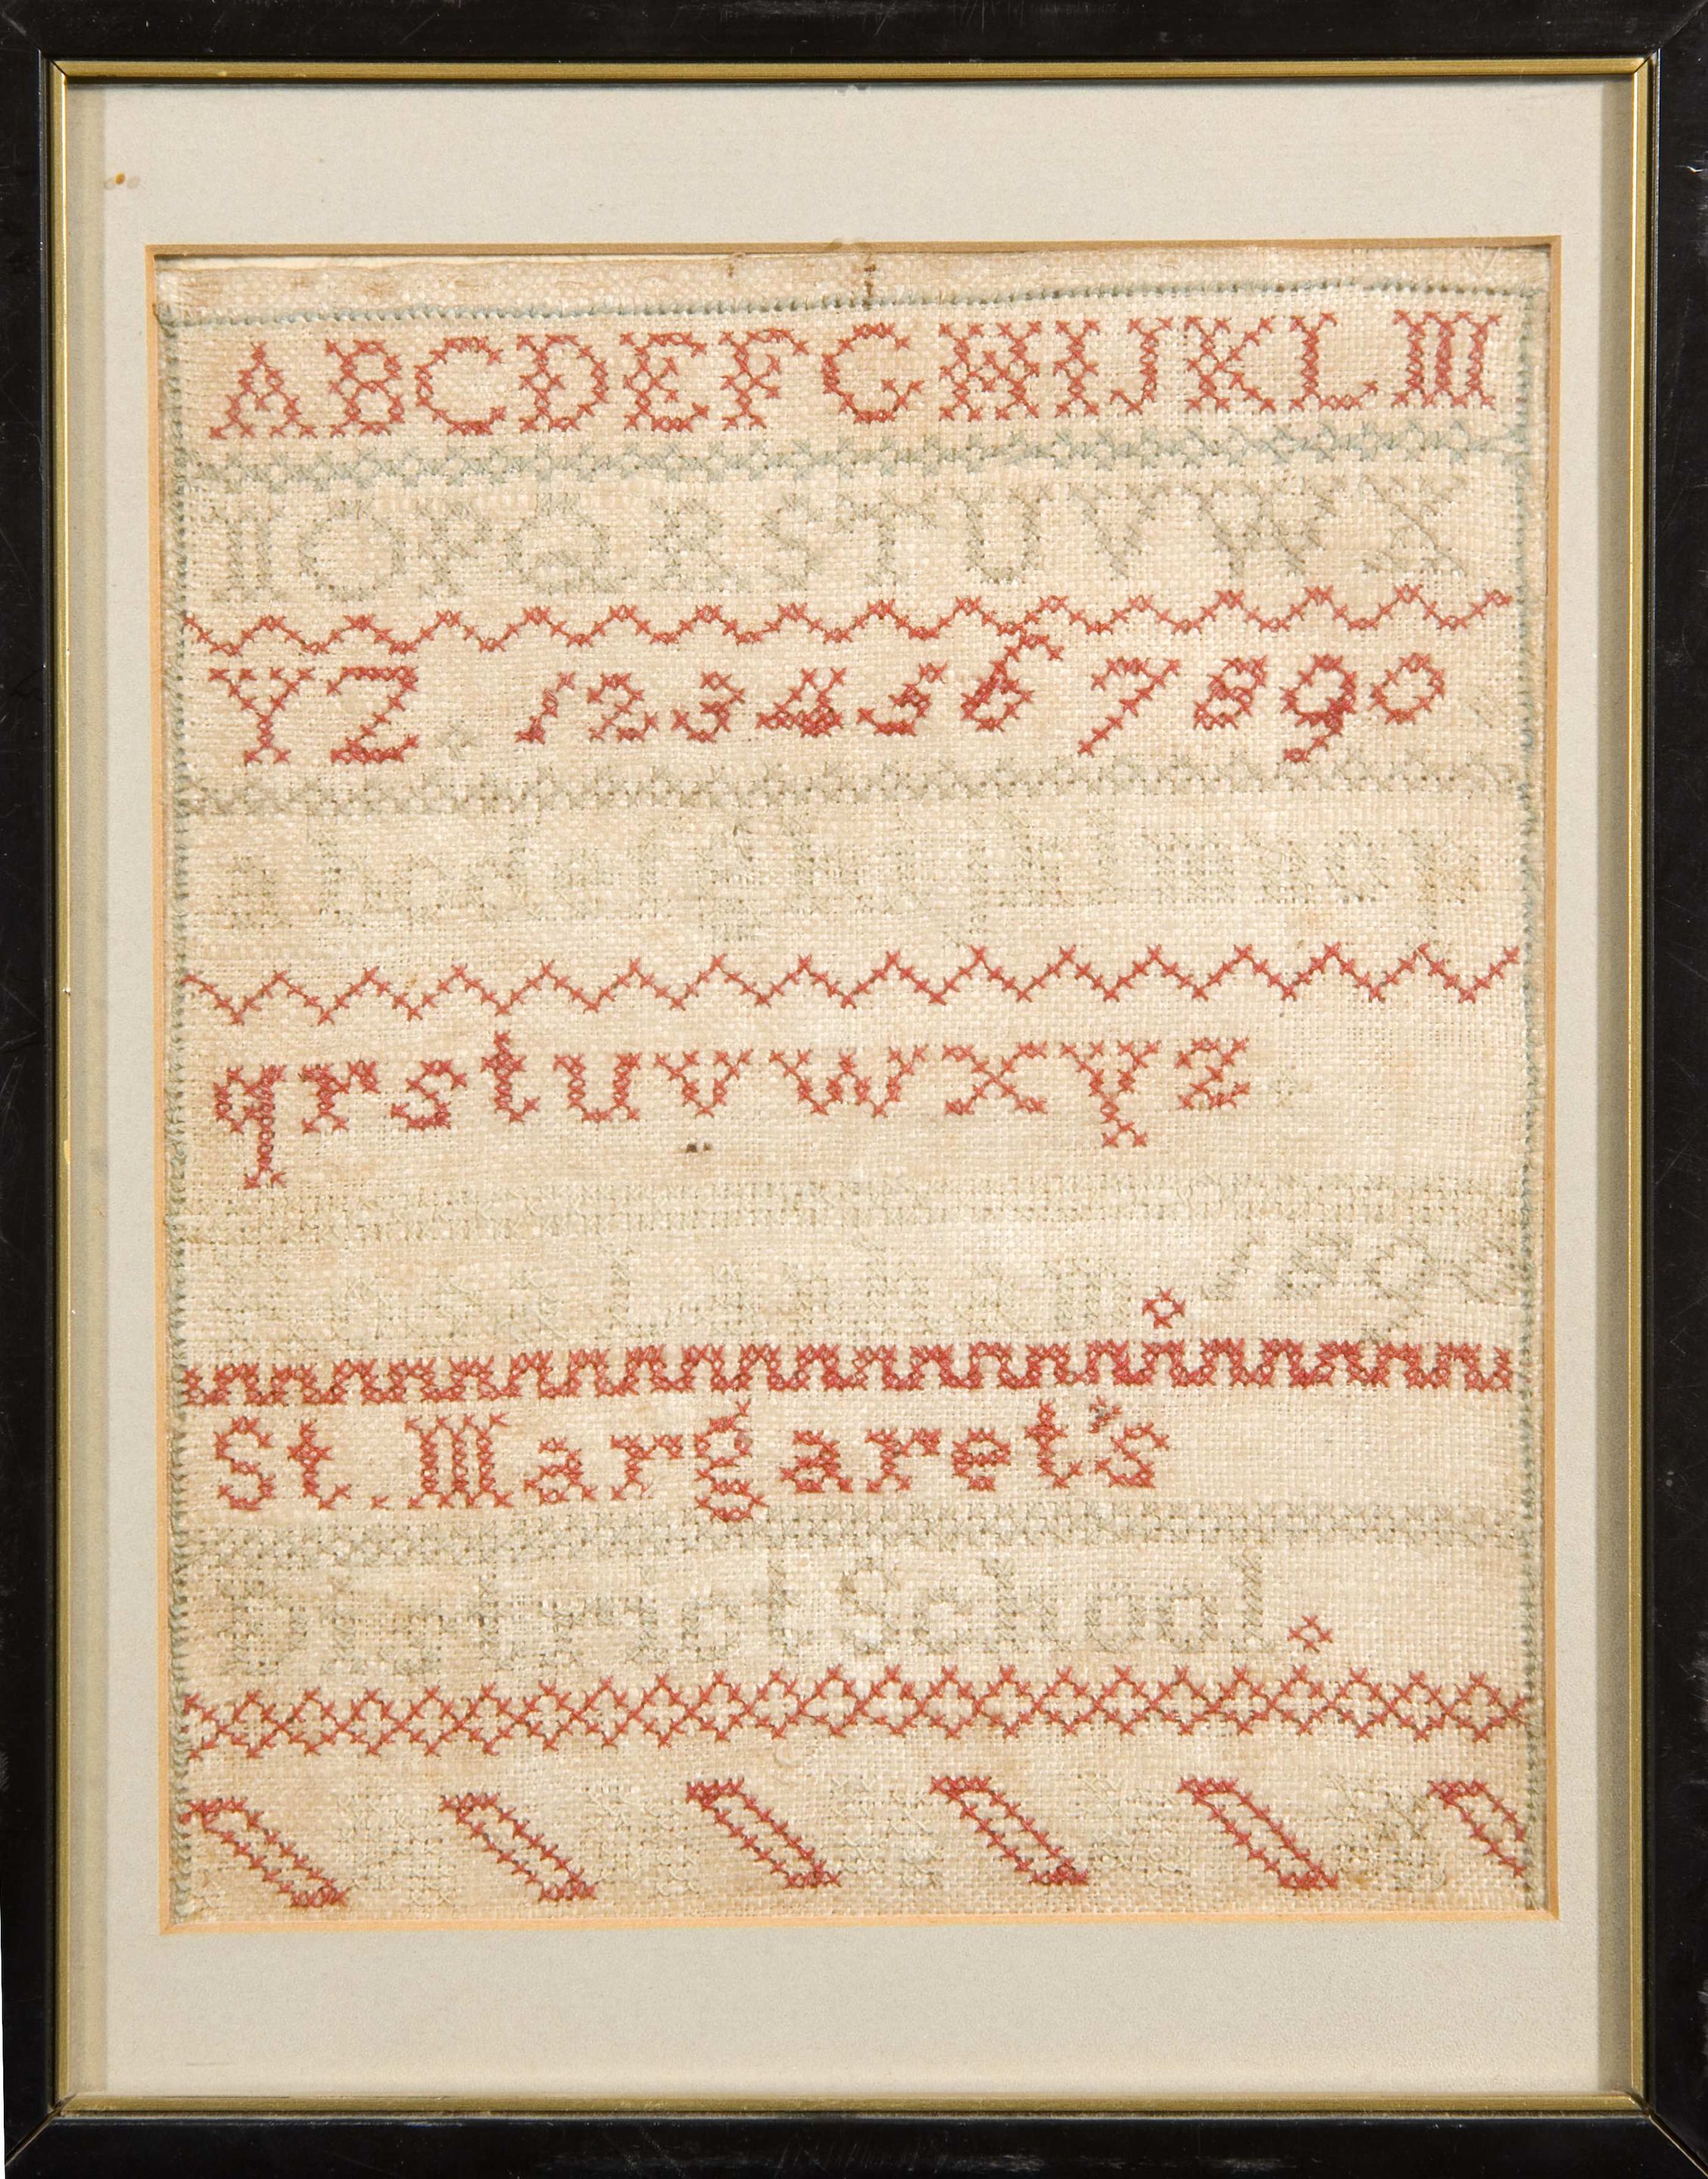 ABCDEFGHIJKLM
NOPQRSTUVWX
YZ. 1234567890
abcdefghijklmnop
qrstuvwxyz
St. Margaret's
District School.